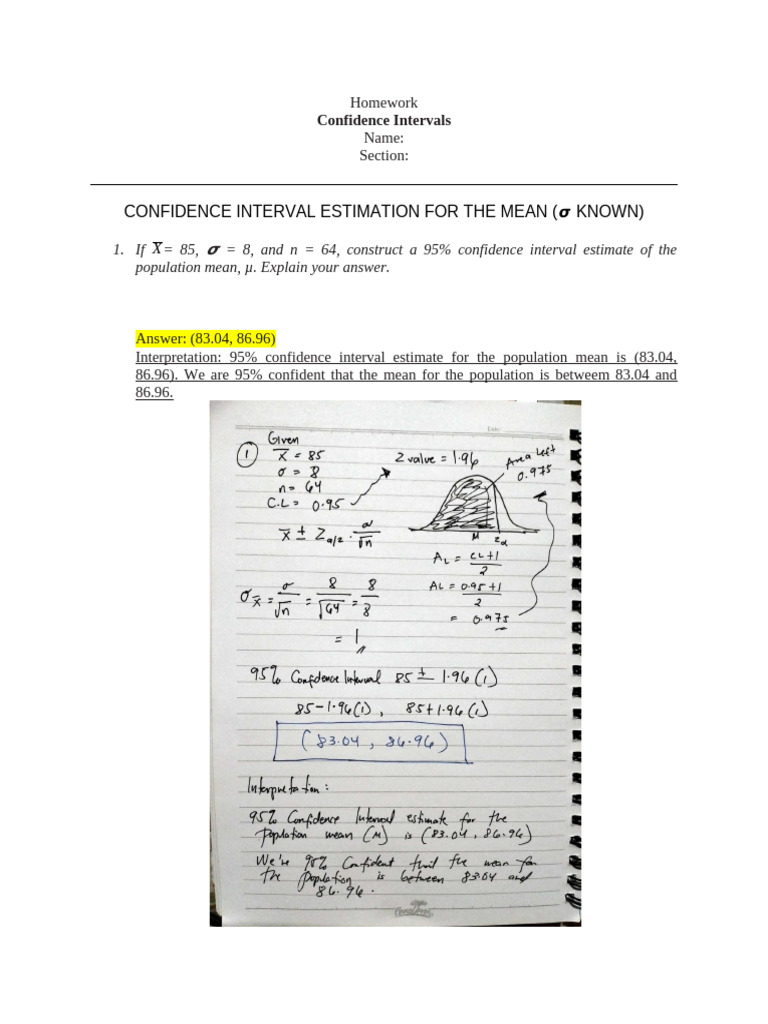 Homework
Confidence Intervals
Name:
Section:
CONFIDENCE INTERVAL ESTIMATION FOR THE MEAN (σ KNOWN)
1. If X̅= 85, σ = 8, and n = 64, construct a 95% confidence interval estimate of the
population mean, µ. Explain your answer.
Answer: (83.04, 86.96)
Interpretation: 95% confidence interval estimate for the population mean is (83.04,
86.96). We are 95% confident that the mean for the population is betweem 83.04 and
86.96.
Given
1 x̅ = 85
σ = 8
n = 64
C.L = 0.95
Z value = 1.96
Area left
0.975
μ zα
x̅ ± Zα/2 · σ/√n
AL = CL+1/2
AL = 0.95+1/2
= 0.975
σx̅ = σ/√n = 8/√64 = 8/8
= 1
95% Confidence Interval 85 ± 1.96 (1)
85-1.96(1), 85+1.96(1)
(83.04, 86.96)
Interpretation:
95% Confidence Interval estimate for the
Population mean (μ) is (83.04, 86.96)
We're 95% Confident that the mean for
the population is between 83.04 and
86.96.